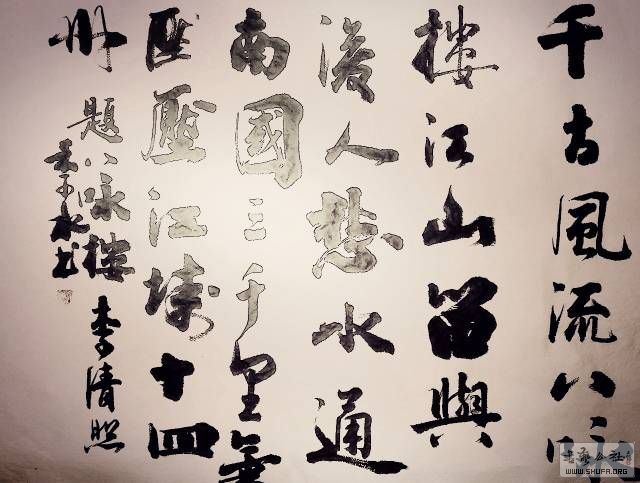 千古風流八咏
樓江山留與
後人愁水通
南國三千里氣
壓江城十四
州
題八咏樓李清照
WWW.SHUFA.ORG